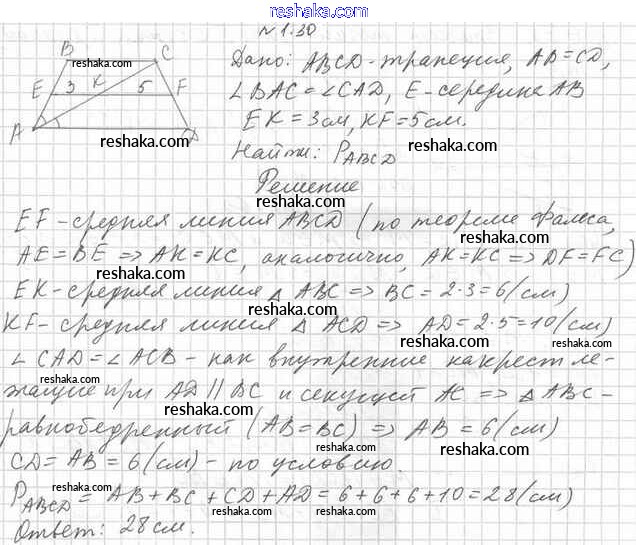 reshaka.com
№1.30
Дано: ABCD-трапеция, AB=CD,
∠BAC=∠CAD, E-середина AB
EK=3см, KF=5см.
reshaka.com
Найти: P_ABCD
reshaka.com
B C
E 3 K 5 F
A D
reshaka.com
Решение
EF-средняя линия ABCD (по теореме Фалеса,
reshaka.com
AE=BE => AK=KC, аналогично, AK=KC => DF=FC)
reshaka.com
reshaka.com
EK-средняя линия △ ABC => BC=2·3=6(см)
reshaka.com
KF-средняя линия △ ACD => AD=2·5=10(см)
reshaka.com
∠CAD=∠ACB-как внутренние накрест ле-
reshaka.com
reshaka.com
жащие при AD||BC и секущей AC => △ABC-
reshaka.com
равнобедренный (AB=BC) => AB=6(см)
reshaka.com
reshaka.com
CD=AB=6(см)-по условию.
reshaka.com
P_ABCD=AB+BC+CD+AD=6+6+6+10=28(см)
reshaka.com
reshaka.com
reshaka.com
Ответ: 28см.